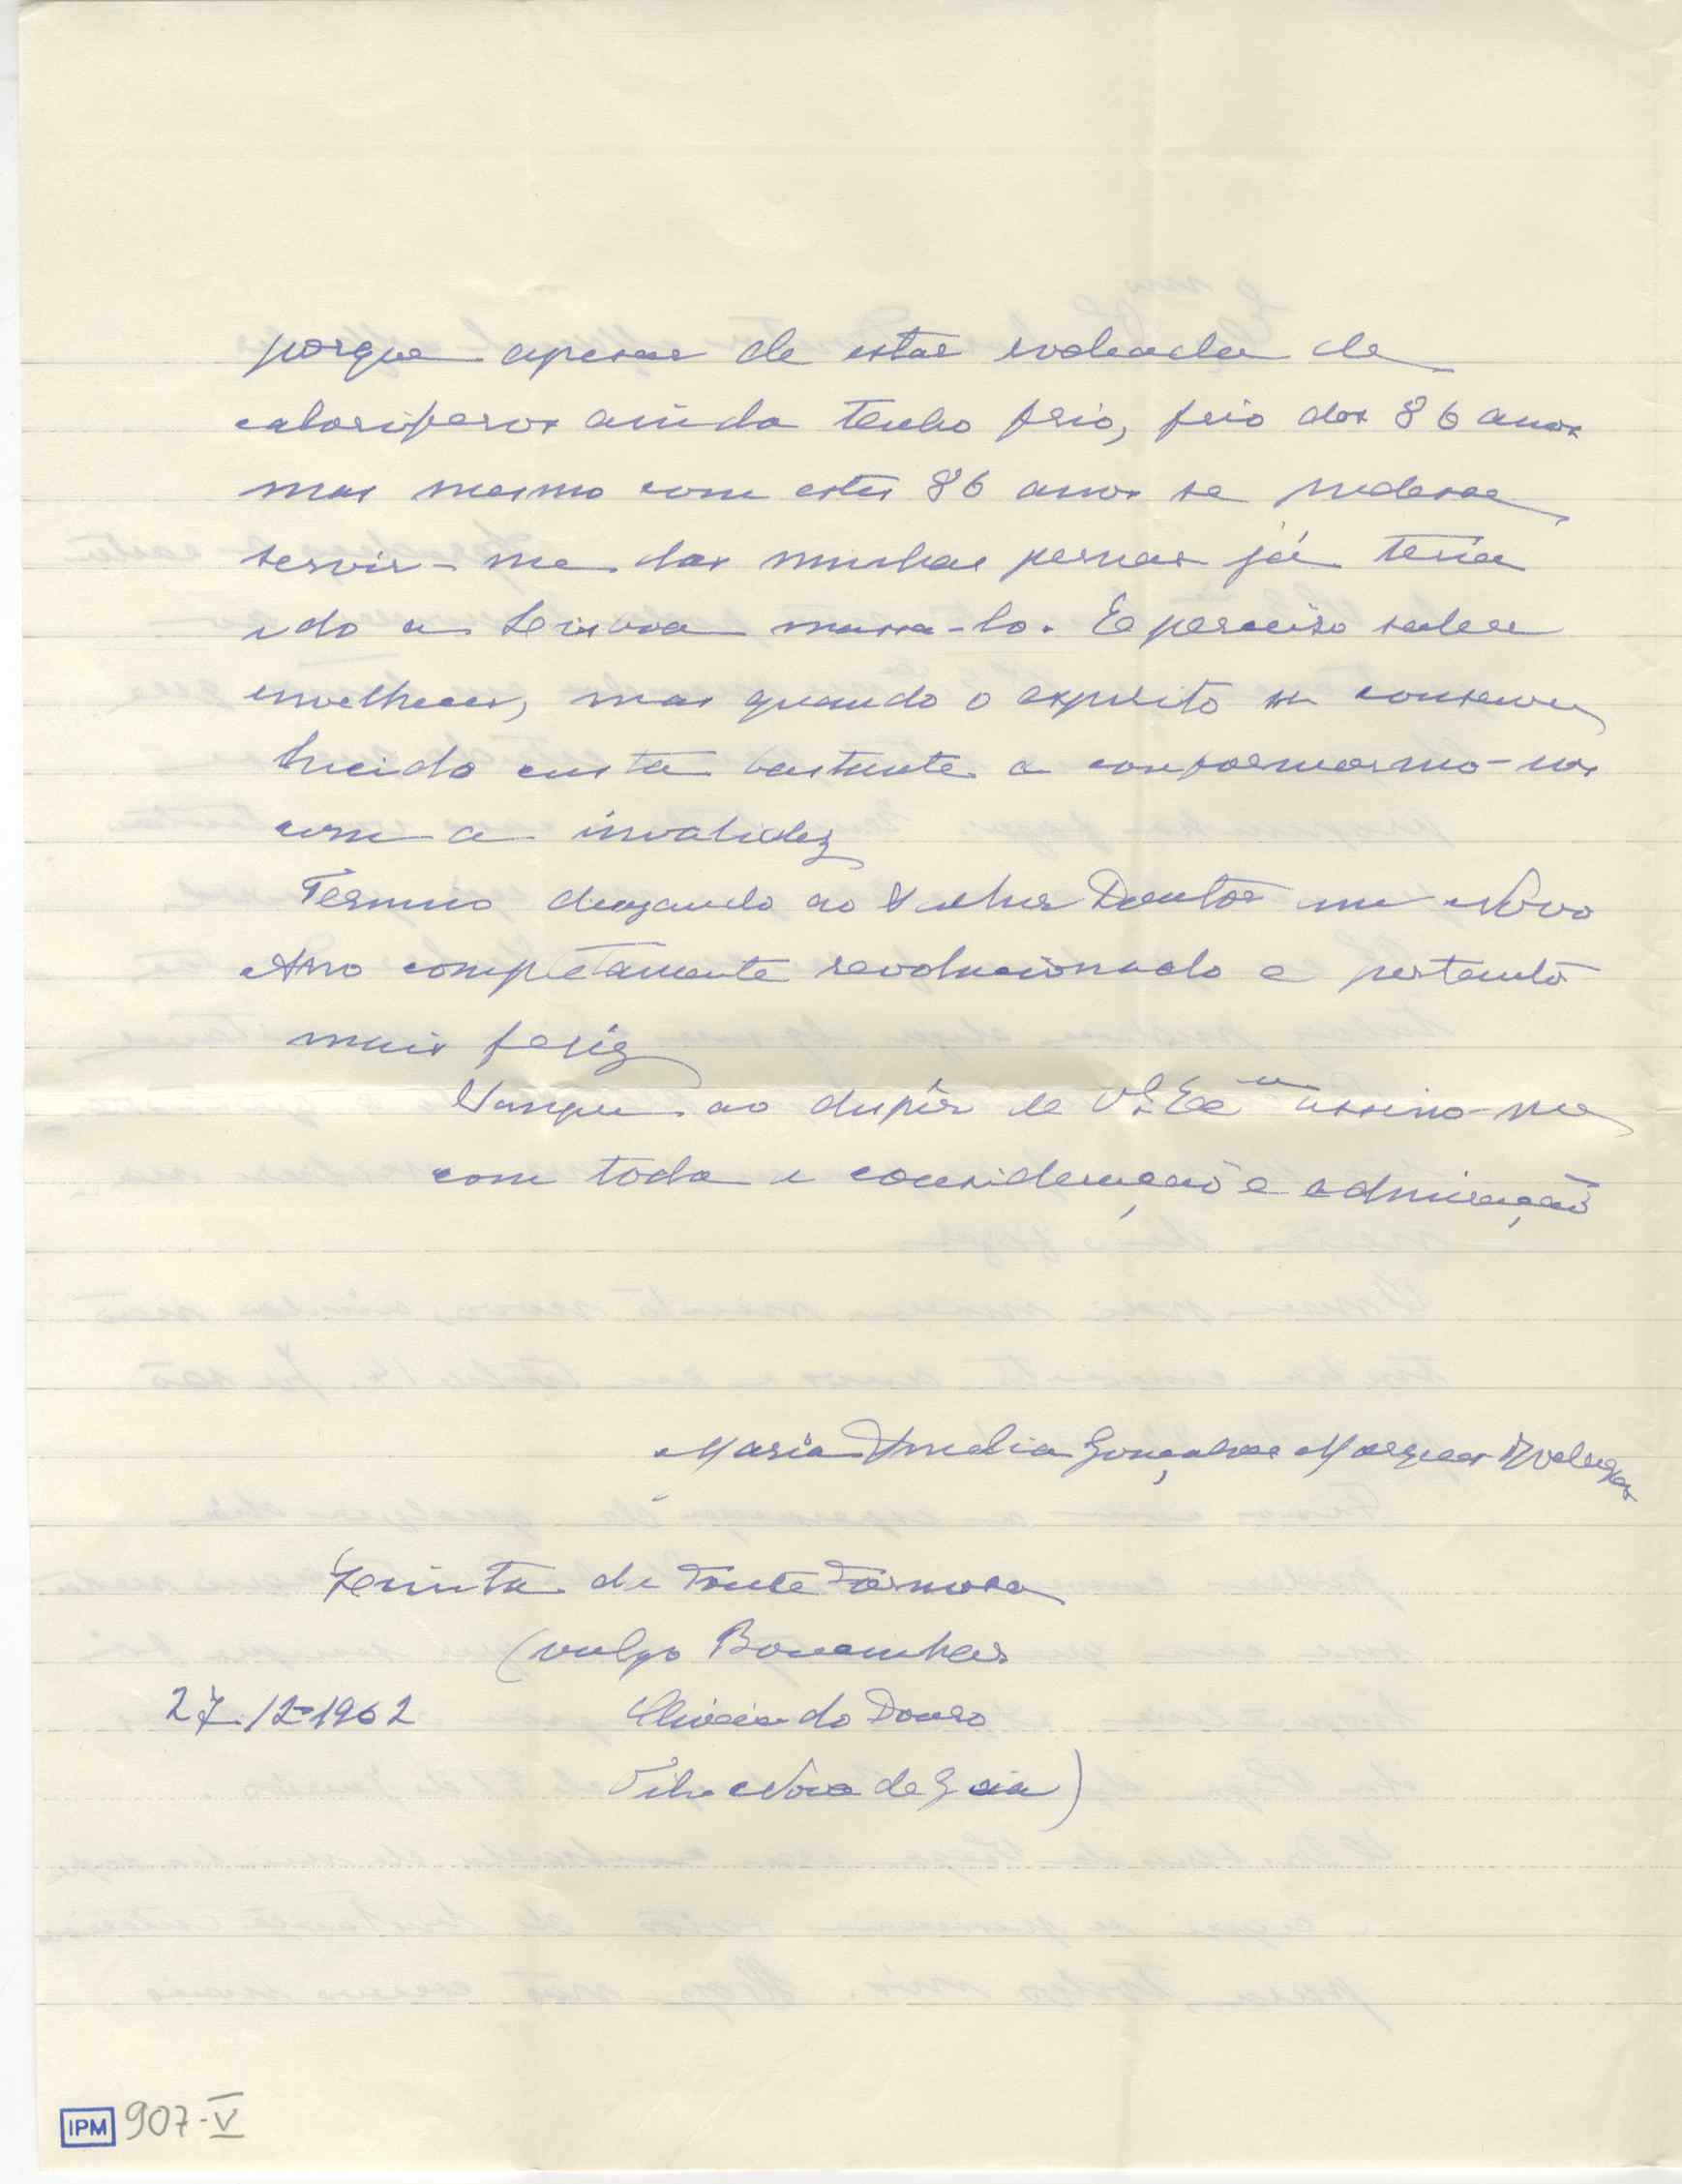 porque apesar de estar rodeada de
caloriferos ainda tenho frio, frio dos 86 anos
mas mesmo com estes 86 anos se pudesse
servir-me das minhas pernas já teria
ido a Lisboa massa-lo. E perciso saber
envelhecer, mas quando o espirito se conserva
lucido custa bastante a conformarmo-nos
com a invalidez
Termino desejando ao Senhor Doutor um Novo
Ano completamente revolucionado e portanto
mais feliz
Sempre ao dispôr de V.ª Ex.ª assino-me
com toda a consideração e admiração
Maria Amelia Gonçalves Marques
Quinta da Fonte Formosa
(vulgo
27-12-1962 Oliveira do Douro
Vila Nova de Gaia)
IPM 907-V